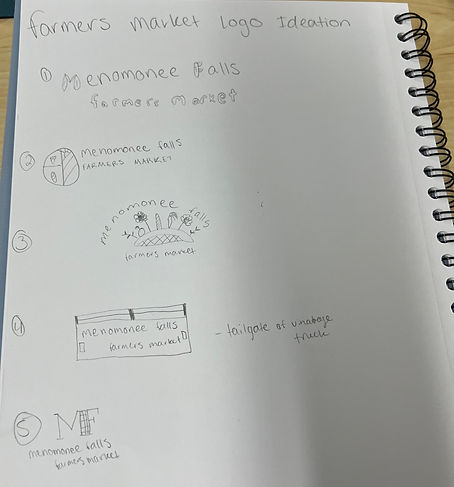 farmers market logo Ideation
① Menomonee Falls
farmers Market
② menomonee falls
FARMERS MARKET
③ menomonee falls
farmers market
④ menomonee falls
farmers market
- tailgate of
truck
⑤ MF
menomonee falls
farmers market